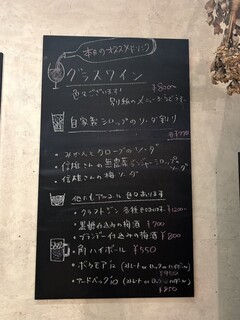 本日のオススメドリンク
グラスワイン
色々ございます! ¥800〜
別紙のメニューからどうぞ
自家製シロップのソーダ割り
各¥770
・みかんとクローブのソーダ
・信雄さんの無農薬ジンジャーシロップソーダ
・信雄さんの梅ソーダ
他にもアルコール色々あります
・クラフトジン 各種 ¥1200〜
・黒糖仕込みの梅酒 ¥700
・ブランデー仕込みの梅酒 ¥800
・角ハイボール ¥550
・ボウモア (ストレート or ロック or ハイボール)
¥950
・アードベッグ (ストレート or ロック or ハイボール)
¥950